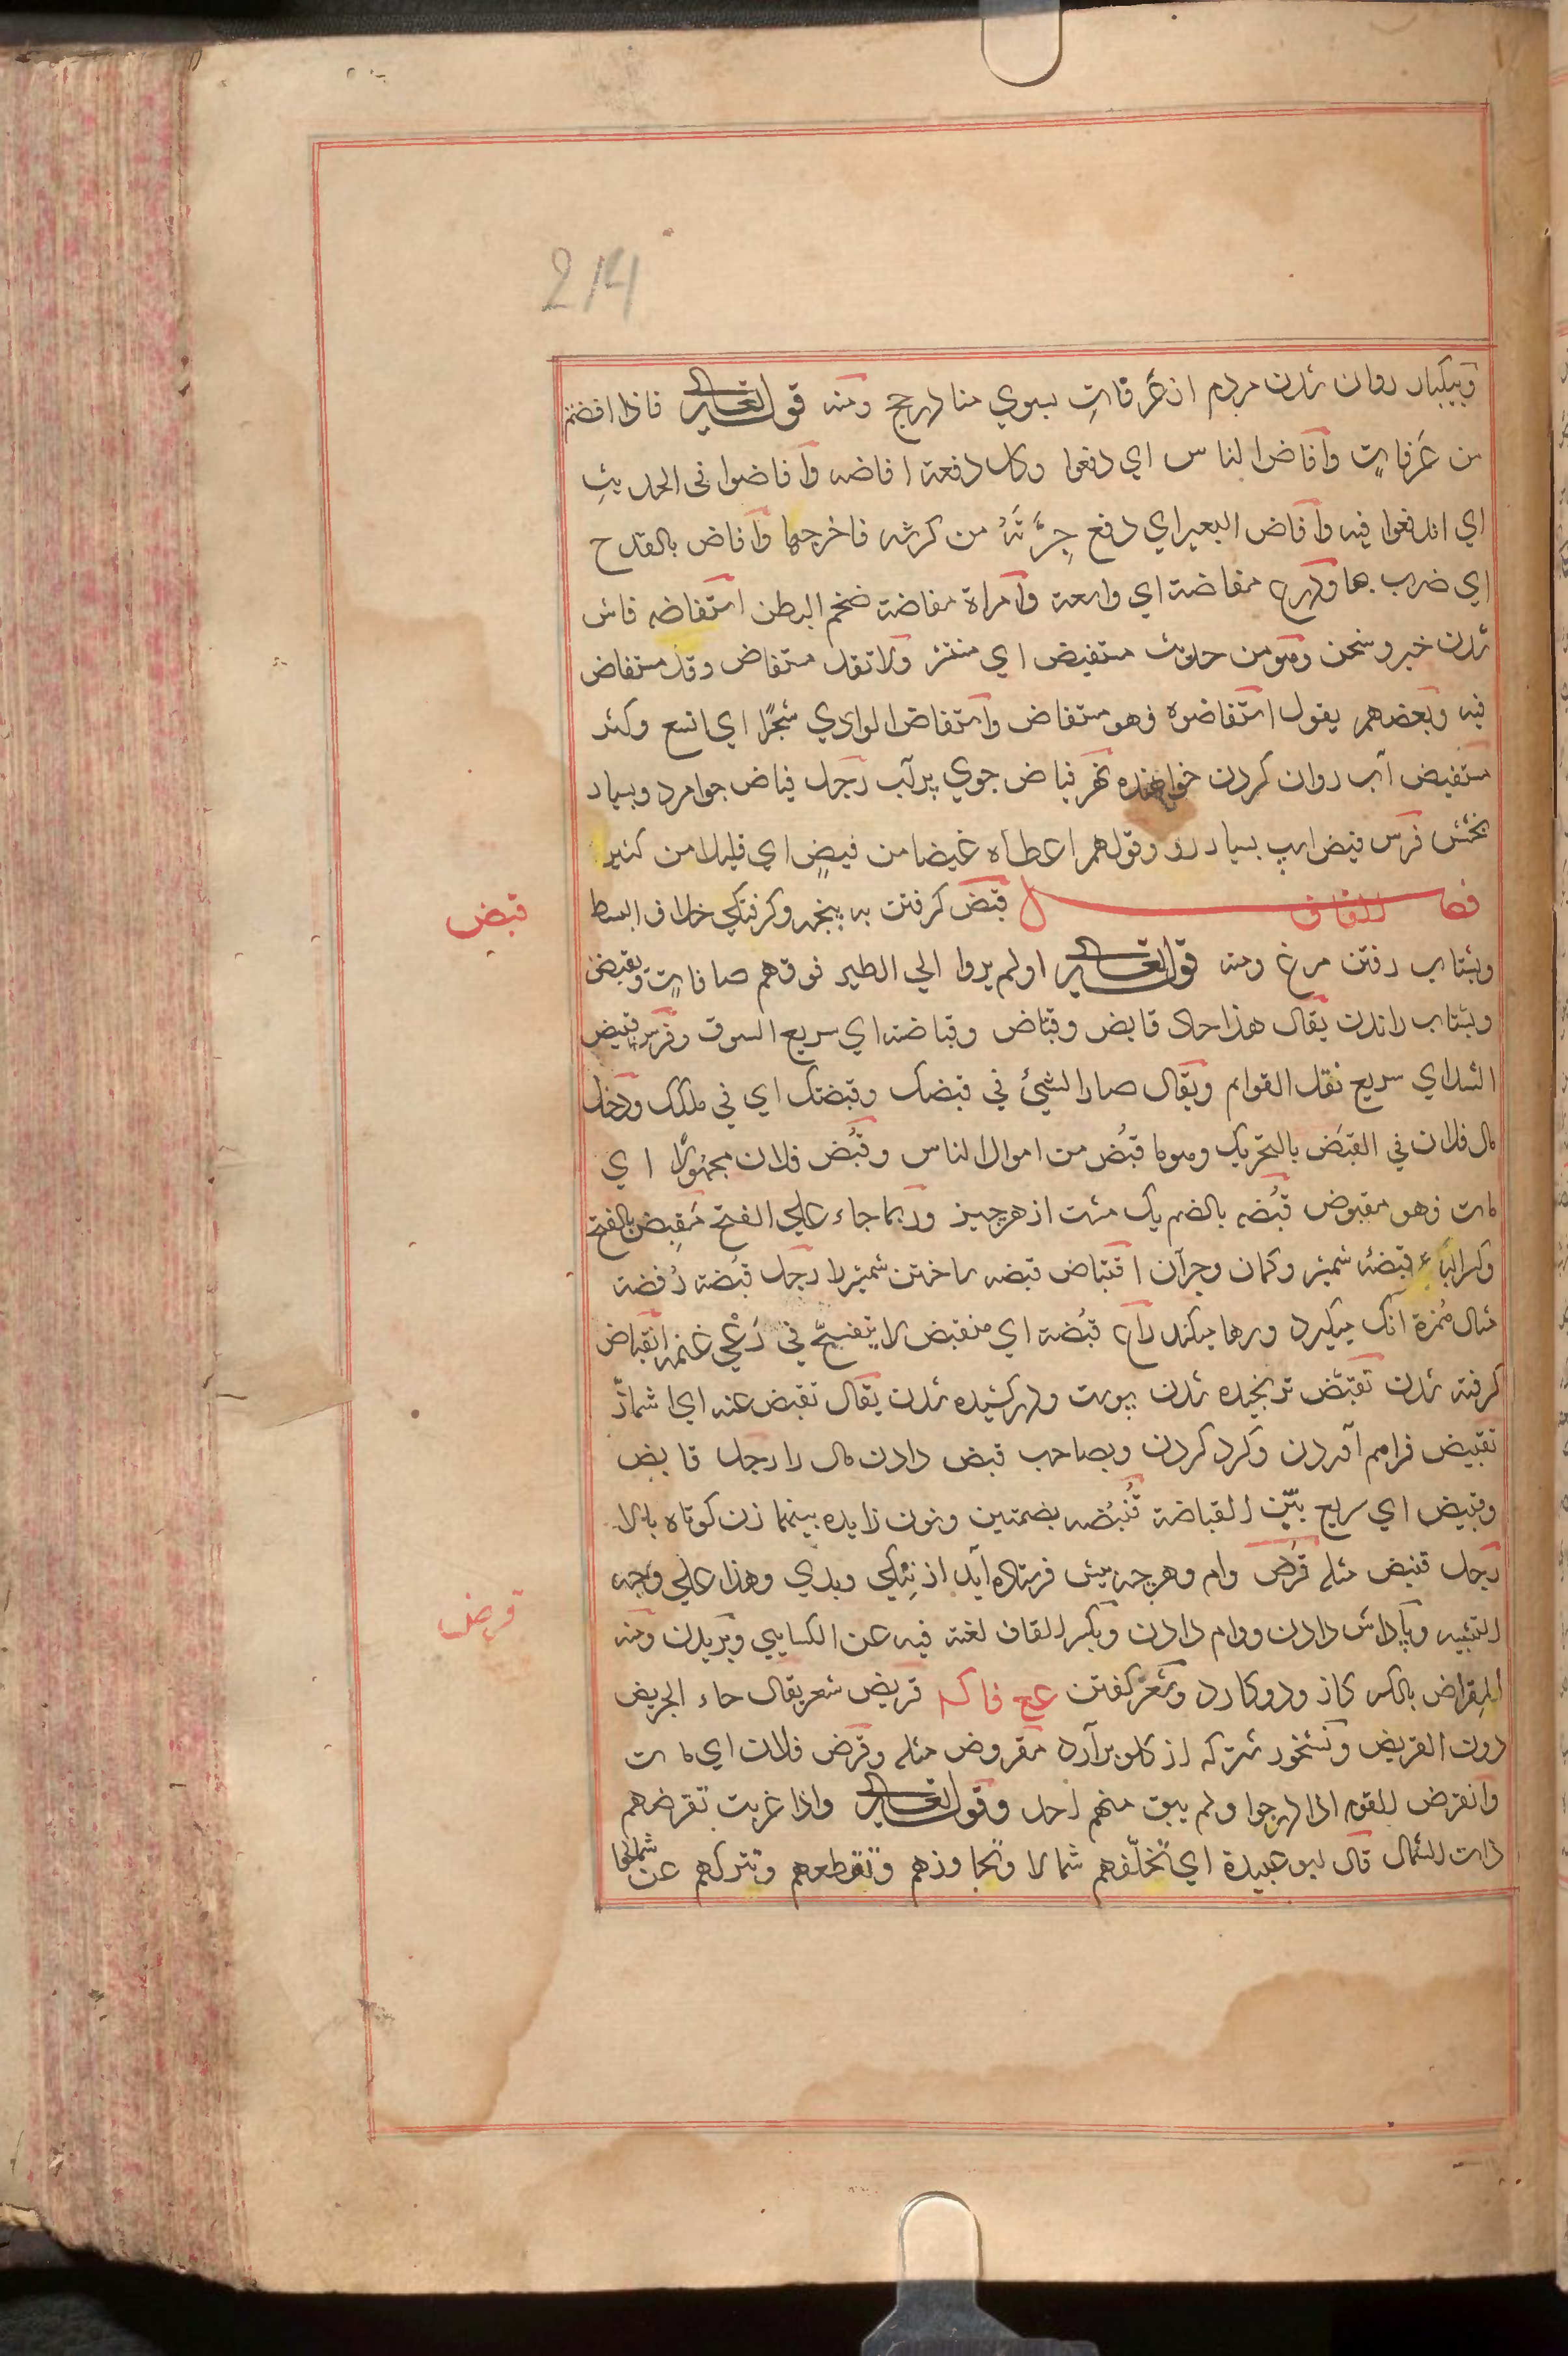 214
وبیکبار روان شدن مردم از عرفات بسوي منا در حج ومنه قوله تعالى فاذا افضتم
من عَرفاتٍ وافاض الناس اي دفعوا وكل دفعة افاضه وافاضوا فى الحديثِ
اي اندفعوا فيه وافاض البعير اي دفع جِرَّتَهُ من كرشه فاخرجها وافاض بالقدح
اي ضرب بها ودرع مفاضة اي واسعة وامراة مفاضة ضخم البطن استفاضه فاش
شدن خبر وسخن وهو من حديث مستفيض اي منتشر ولا تقل مستفاض وقد مستفاض
فيه وبعضهم يقول استفاضوه فهو مستفاض واستفاض الوادي شجرًا اي اتسع وكثر
مستفيض آب روان كردن خواهنده نهر فياض جوي پرآب رجل فياض جوامرد وبسيار
بخشش فرس فيض اسپ بسيار رو وقولهم اعطاه غيضا من فيضٍ اي قليلا من كثير
قبض
فصل القاف قبض كرفتن به پنجه وكرفتكي خلاف البسط
وبشتاب رفتن مرغ ومنه قوله تعالى اولم يروا الي الطير فوقهم صافاتٍ ويقبضن
وبشتاب راندن يقال هذا حادٍ قابض وقباض وقباضة اي سريع السوق وفرس قبيض
الشد اي سريع نقل القوايم ويقال صار الشيئ في قبضك وقبضتك اي في ملكك ودخل
مال فلان في القبَض بالتحريك وهو ما قبُض من اموال الناس وقُبض فلان مجهولًا اي
مات فهو مقبوض قُبضه بالضم يك مشت از هر چيز وربما جاء علي الفتح مَقبِض بالفتح
وكسر الباء قبضهٔ شمشير وكمان وجز آن اقتباض قبضه ساختن شمشير را رجل قبضة رُفضة
مثال هُمَزة آنك ميكيرد ورها ميكند راع قبُضة اي منقبض لا يتفسح في رَعْي غنمه انقباض
كرفته شدن تقبَّض ترنجيده شدن پوست ودر كشيده شدن يقال تقبض عنه اي اشمأزّ
تقبيض فراهم آوردن وكرد كردن وبصاحب قبض دادن مال را رجل قابض
وقبيض اي سريع بيّن القباضة قُنبُضه بضمتين ونون زايده بينهما زن كوتاه بالا
قرض
رجل قنبض مثله قرَض وام وهرچه پيش فرستاده آيد از نيكي وبدي وهذا علي وجه
التشبيه وپاداش دادن ووام دادن وبكسر القاف لغة فيه عن الكسايي وبريدن ومنه
المِقراض بالكسر كاز ودو كارد وشعر كفتن قريض شعر يقال حاء الجريض
دون القريض ونشخور شتر كه از كلو برآرد مقروض مثله وقرَض فلان اي مات
وانقرض القوم اذا درجوا ولم يبق منهم احد وقوله تعالى واذا غربت تقرضهم
ذات الشمال قال ابو عبيدة اي تخلّفهم شمالا وتجاوزهم وتقطعهم وتتركهم عن شمالها